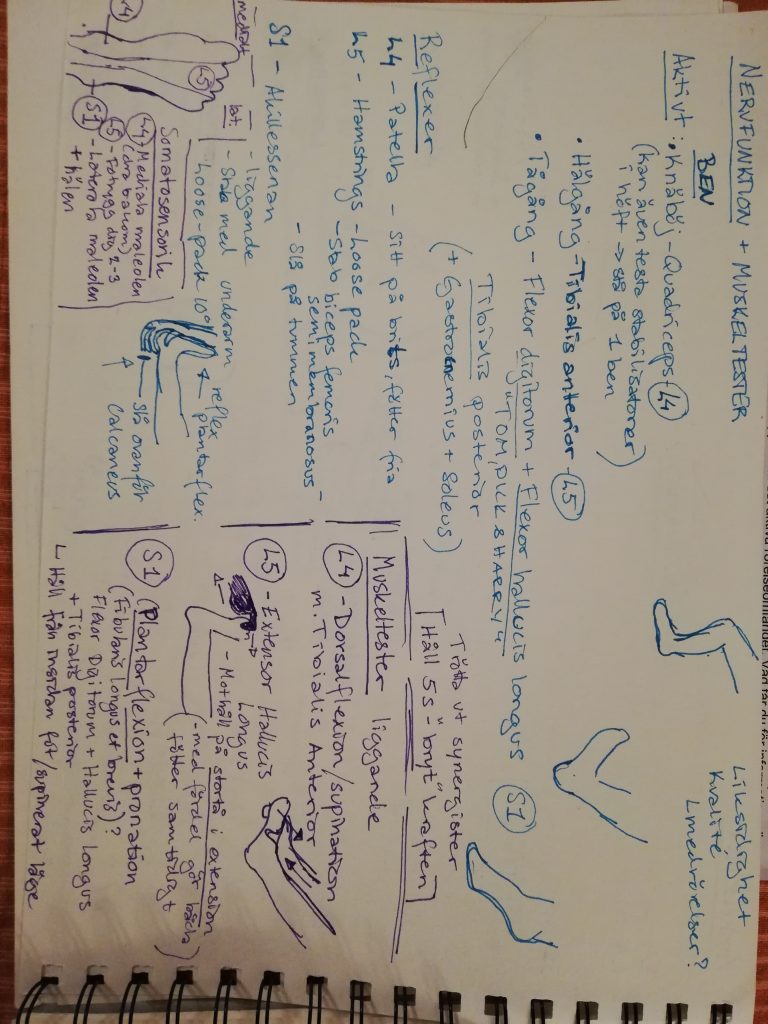 NERVFUNKTION + MUSKELTESTER
BEN
Aktivt: • Knäböj - Quadriceps - L4
(kan även testa stabilisatorer
i höft → stå på 1 ben)
• Hälgång - Tibialis anterior - L5
• Tågång - Flexor digitorum + Flexor hallucis longus S1
"TOM, DICK & HARRY"
Tibialis posterior
(+ Gastrocnemius + Soleus)
Liksidighet
Kvalité
medrörelser?
Reflexer
L4 - Patella - Sitt på brits, fötter fria
L5 - Hamstrings - Loose pack
- Stab biceps femoris
semimembranosus -
- Slå på tummen
S1 - Akillessenan
- liggande
- Stab med underarm
loose-pack 10°
reflex
plantarflex.
Slå ovanför
Calcaneus
medialt
lat.
L4
L5
S1
Somatosensorik
L4 Mediala maleolen
(dra bakom)
L5 - Fotrygg dig 2-3
S1 - Laterala maleolen
+ hälen
Trötta ut synergister
"Håll 5s" "bryt" kraften
Muskeltester liggande
L4 - Dorsalflexion/supination
m. Tibialis Anterior
L5 - Extensor Hallucis
Longus
- Mothåll på stortå i extension
(- med fördel gör båda
fötter samtidigt)
S1 (Plantarflexion + pronation
(Fibularis longus et brevis)?
Flexor Digitorum + Hallucis longus
+ Tibialis posterior
Håll från insidan fot/supinerat läge